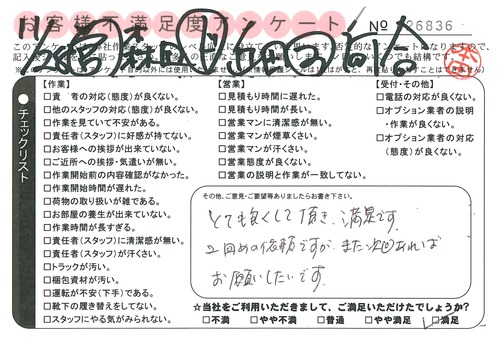 お客様不満足度アンケート
№ 26836
【作業】
□責 者の対応(態度)が良くない。
□他のスタッフの対応(態度)が良くない。
□作業を見ていて不安がある。
□責任者(スタッフ)に好感が持てない。
□お客様への挨拶が出来ていない。
□ご近所への挨拶・気遣いが無い。
□作業開始前の内容確認がなかった。
□作業開始時間が遅れた。
□荷物の取り扱いが雑である。
□お部屋の養生が出来ていない。
□作業時間が長すぎる。
□責任者(スタッフ)に清潔感が無い。
□責任者(スタッフ)が汗くさい。
□トラックが汚い。
□梱包資材が汚い。
□運転が不安(下手)である。
□靴下の履き替えをしてない。
□スタッフにやる気がみられない。
【営業】
□見積もり時間に遅れた。
□見積もり時間が長い。
□営業マンに清潔感が無い。
□営業マンが煙草くさい。
□営業マンが汗くさい。
□営業態度が良くない。
□営業の説明と作業が一致してない。
【受付・その他】
□電話の対応が良くない。
□オプション業者の説明
・作業が良くない。
□オプション業者の対応
(態度)が良くない。
チェックリスト
その他、ご意見・ご要望等ありましたらお書き下さい。
とても良くして頂き、満足です。
2回めの依頼ですが、また次回あれば
お願いしたいです。
☆当社をご利用いただきまして、ご満足いただけたでしょうか?
□不満 □やや不満 □普通 □やや満足 □満足